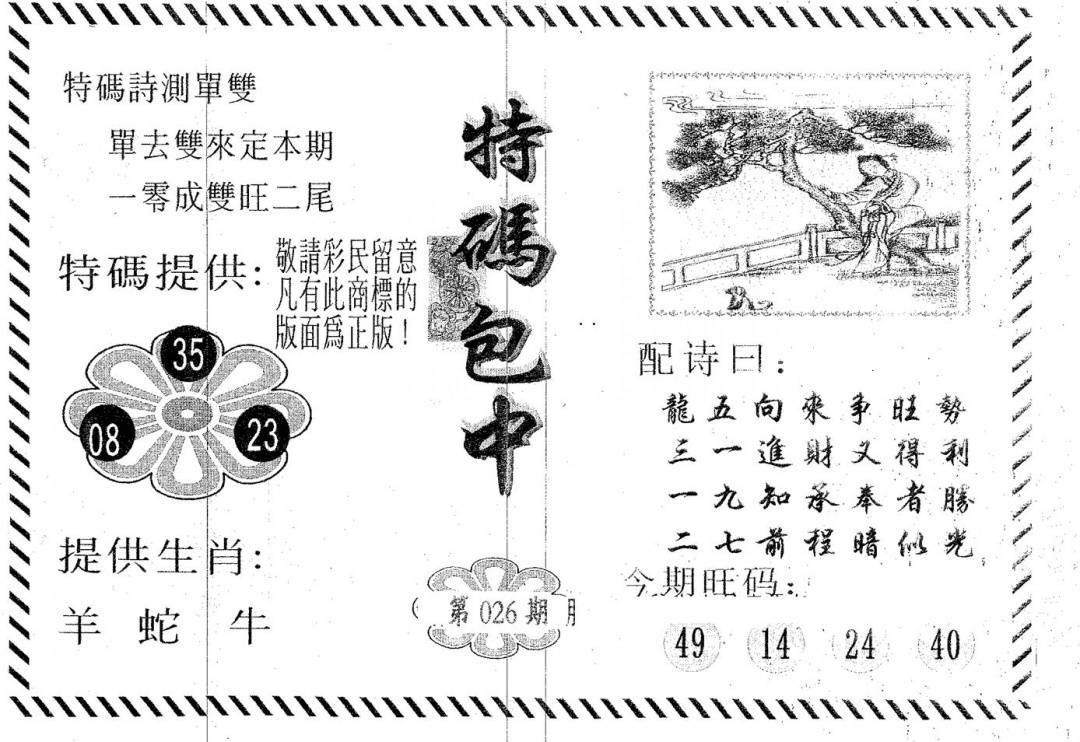 特碼詩測單雙
單去雙來定本期
一零成雙旺二尾
特碼提供:
敬請彩民留意
凡有此商標的
版面為正版！
35
08
23
提供生肖:
羊 蛇 牛
特碼包中
第 026 期
配诗曰：
龍五向來争旺勢
三一進財又得利
一九知承奉者勝
二七前程暗似光
今期旺码:
49 14 24 40